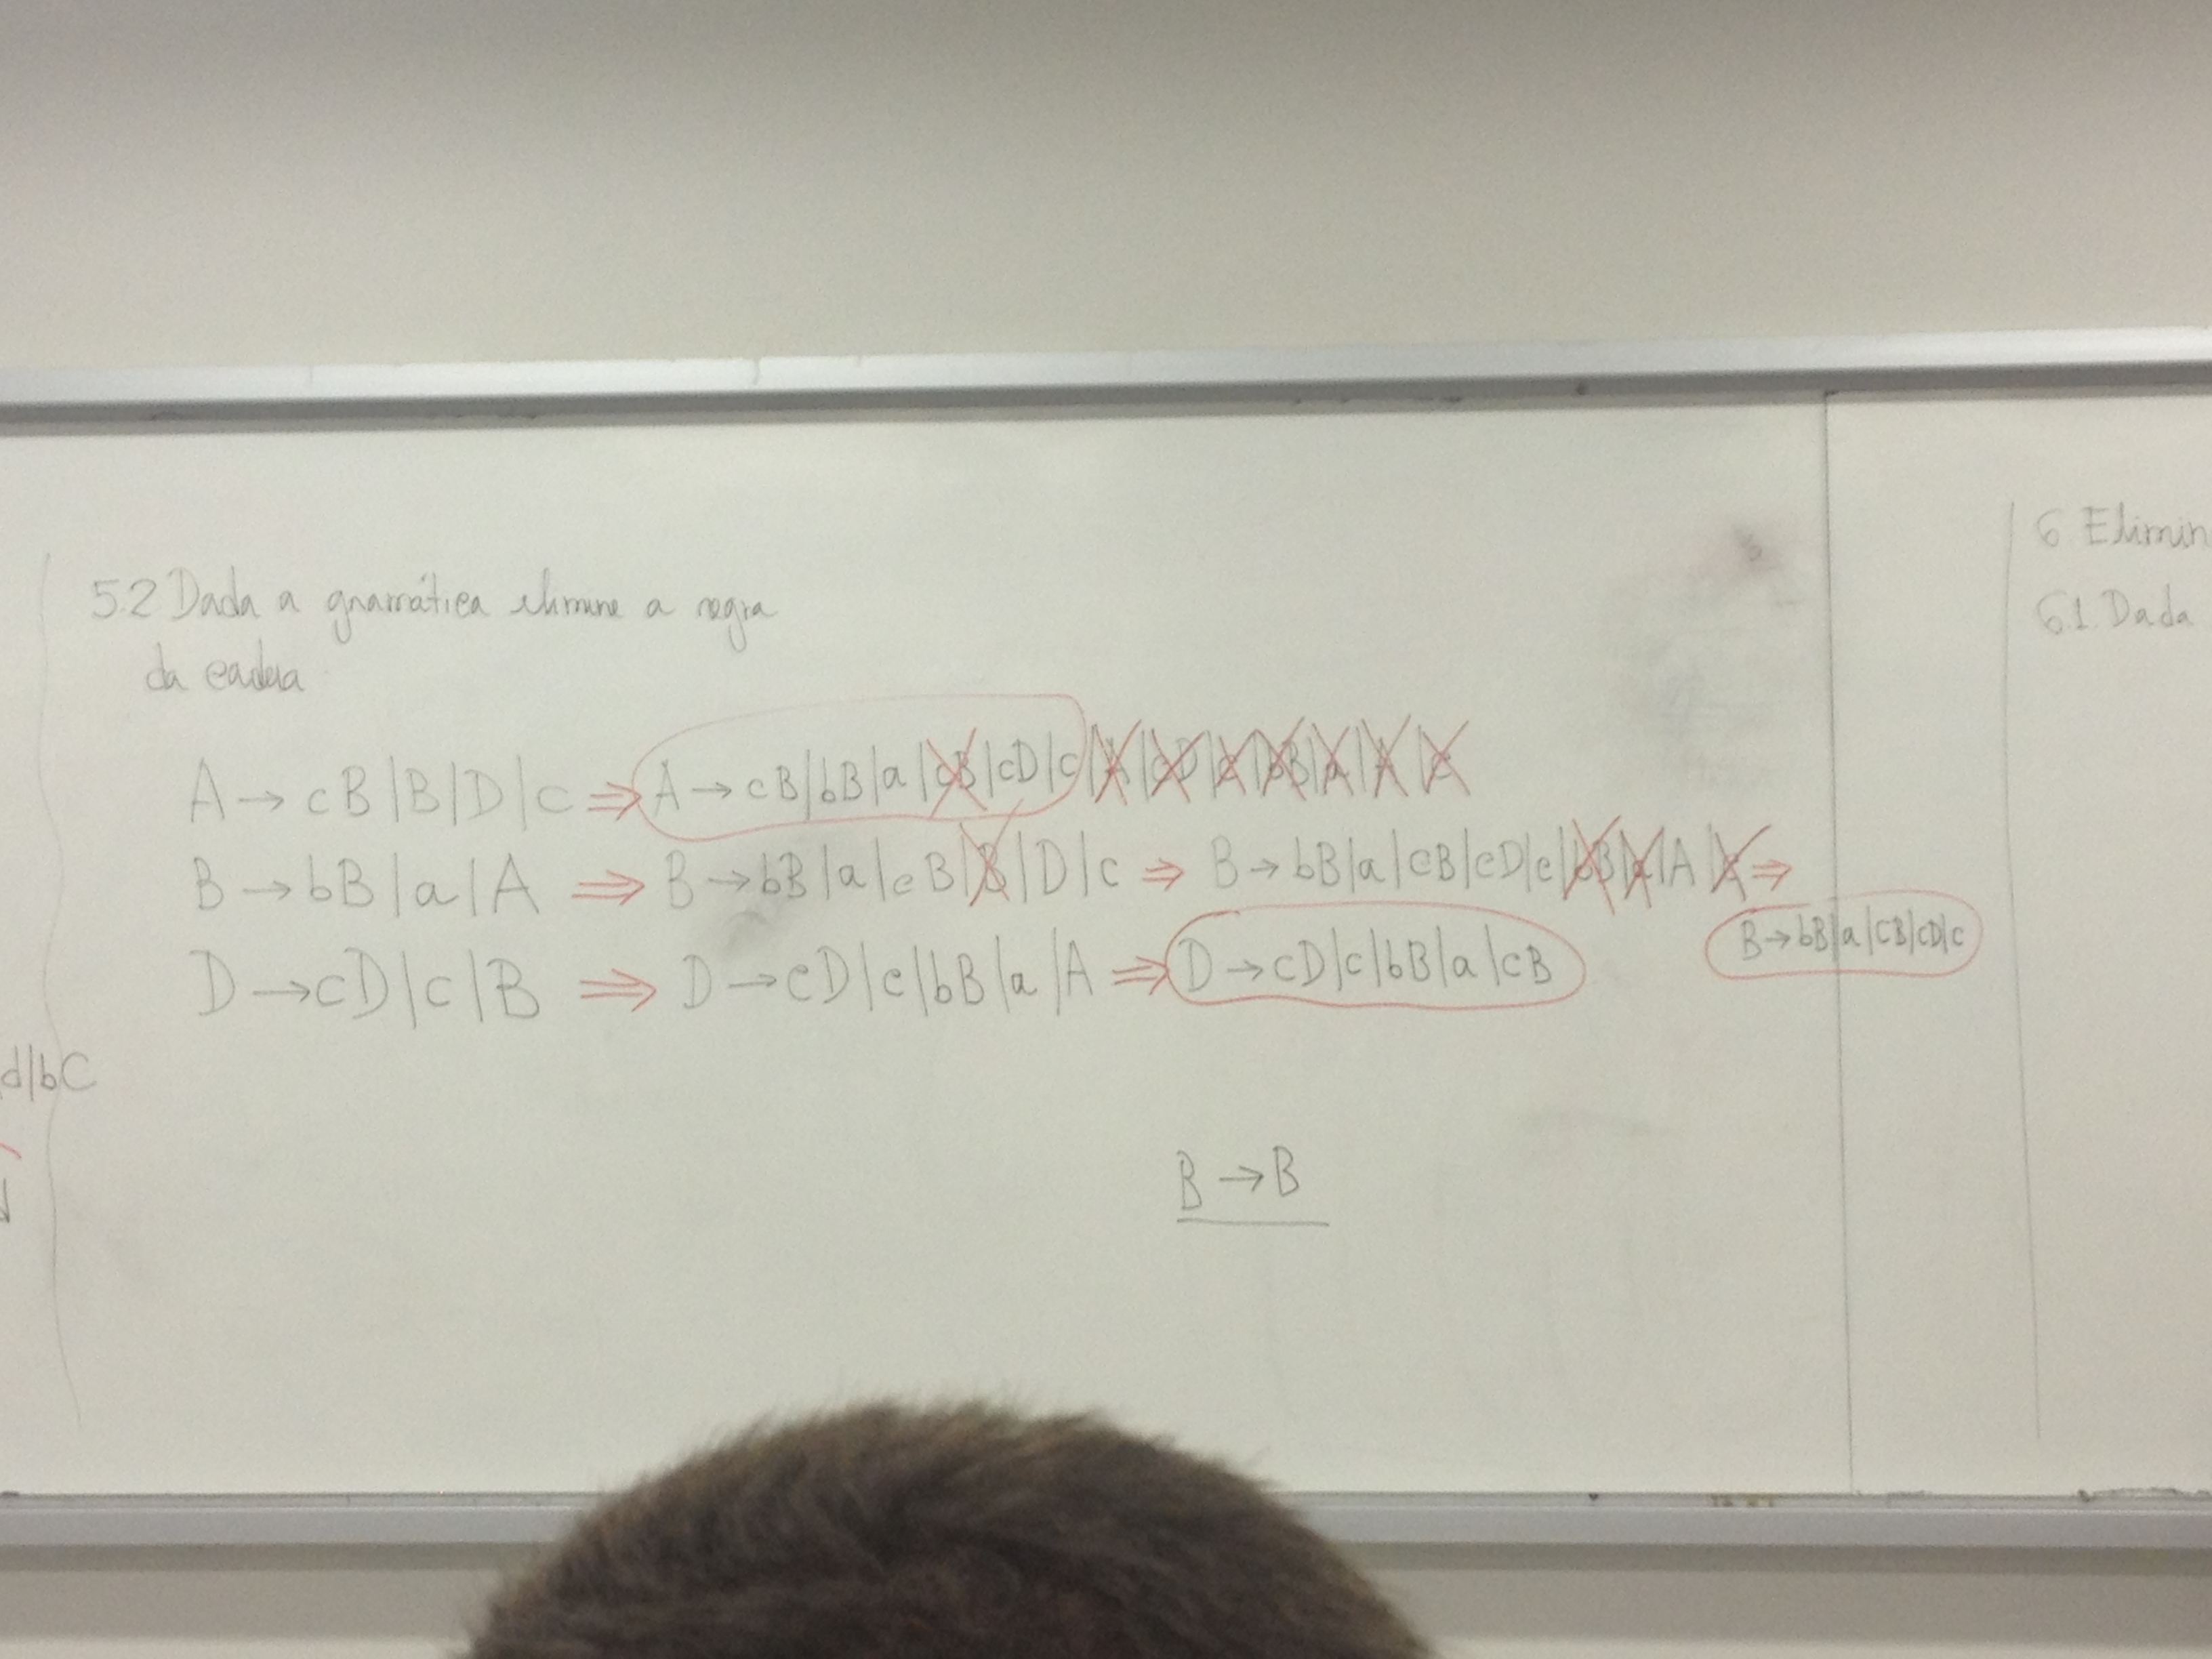 5.2 Dada a gramática elimine a regra
da cadeia
A → cB|B|D|c ⇒ A → cB|bB|a|cB|cD|c|A|cD|c|bB|a|A|c
B → bB|a|A ⇒ B → bB|a|cB|B|D|c ⇒ B → bB|a|cB|cD|c|bB|a|A|c ⇒
B → bB|a|cB|cD|c
D → cD|c|B ⇒ D → cD|c|bB|a|A ⇒ D → cD|c|bB|a|cB
B → B
d|bC
6 Elimin
6.1. Dada